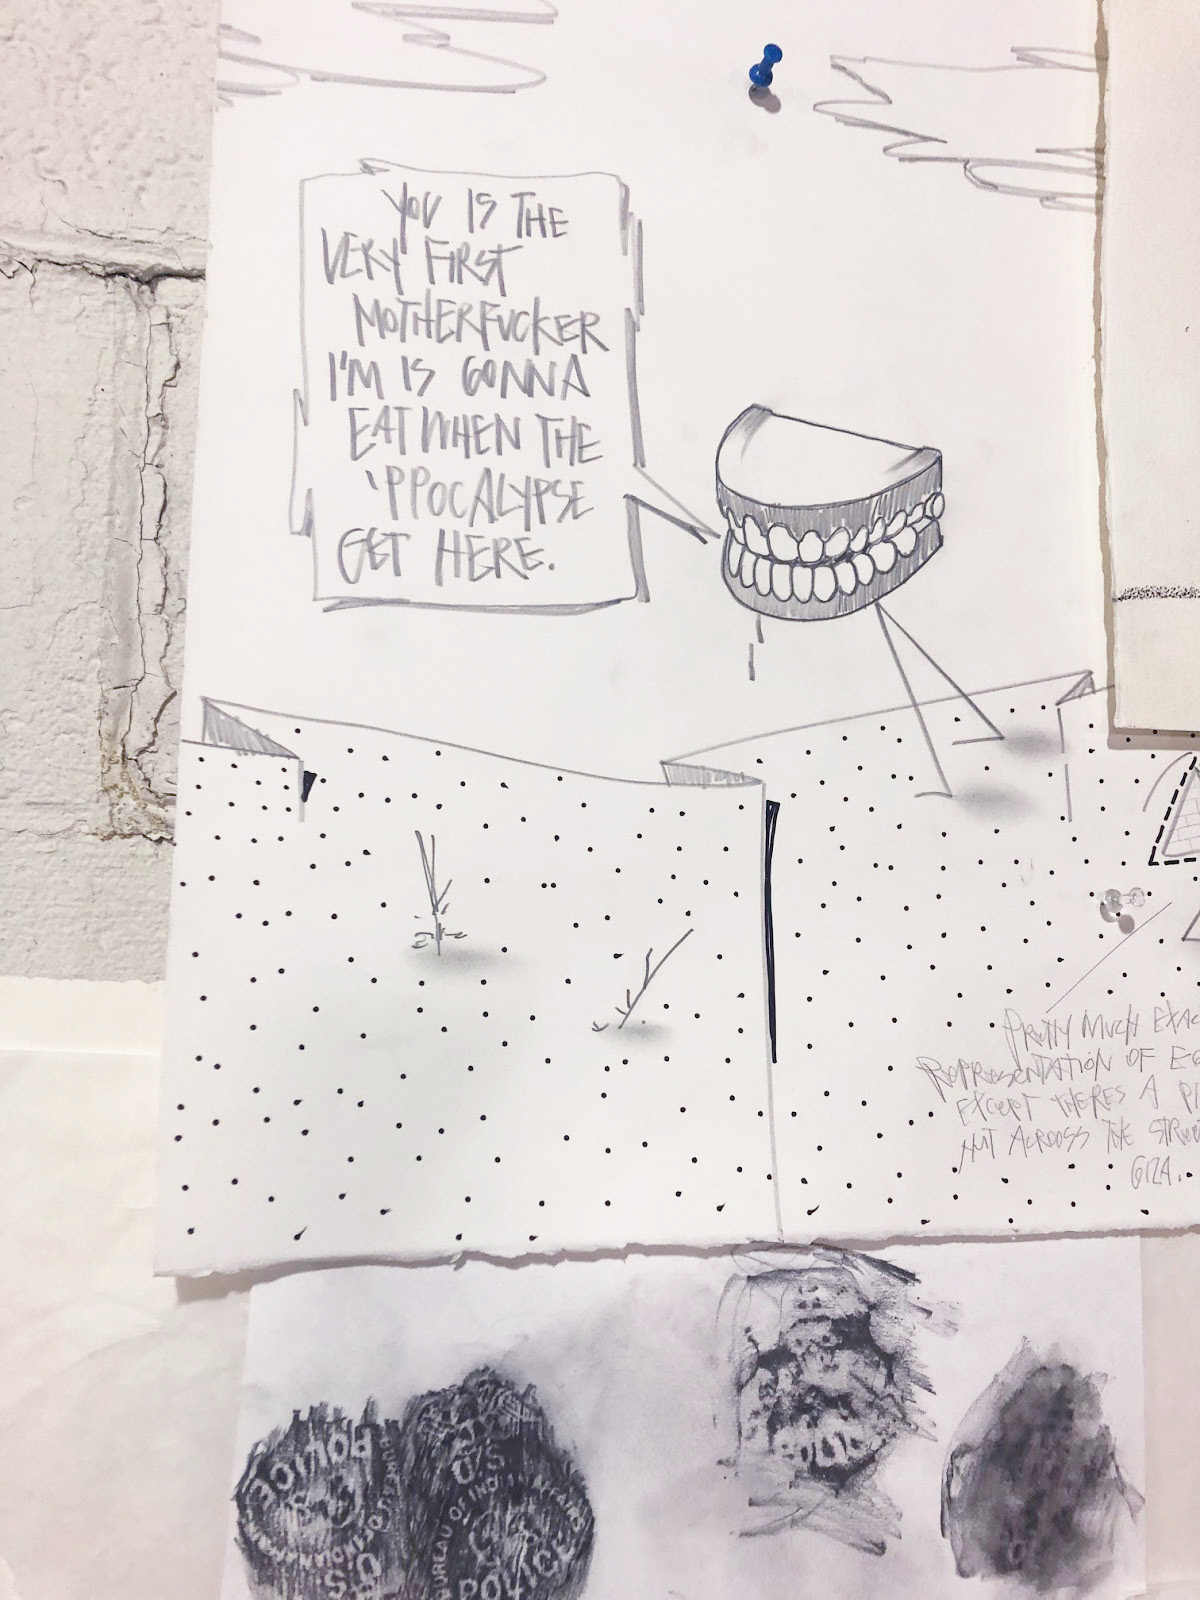 YOU IS THE
VERY FIRST
MOTHERFUCKER
I'M IS GONNA
EAT WHEN THE
'PPOCALYPSE
GET HERE.
PRETTY MUCH EXAC
REPRESENTATION OF EG
EXCEPT THERES A PI
HUT ACROSS THE STREET
GIZA.
POLICE
U.S.
BUREAU OF INDIAN AFFAIRS
POLICE
POLICE
U.S.